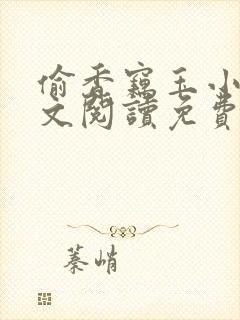 偷香竊玉小
文閱讀免費
蓁峭